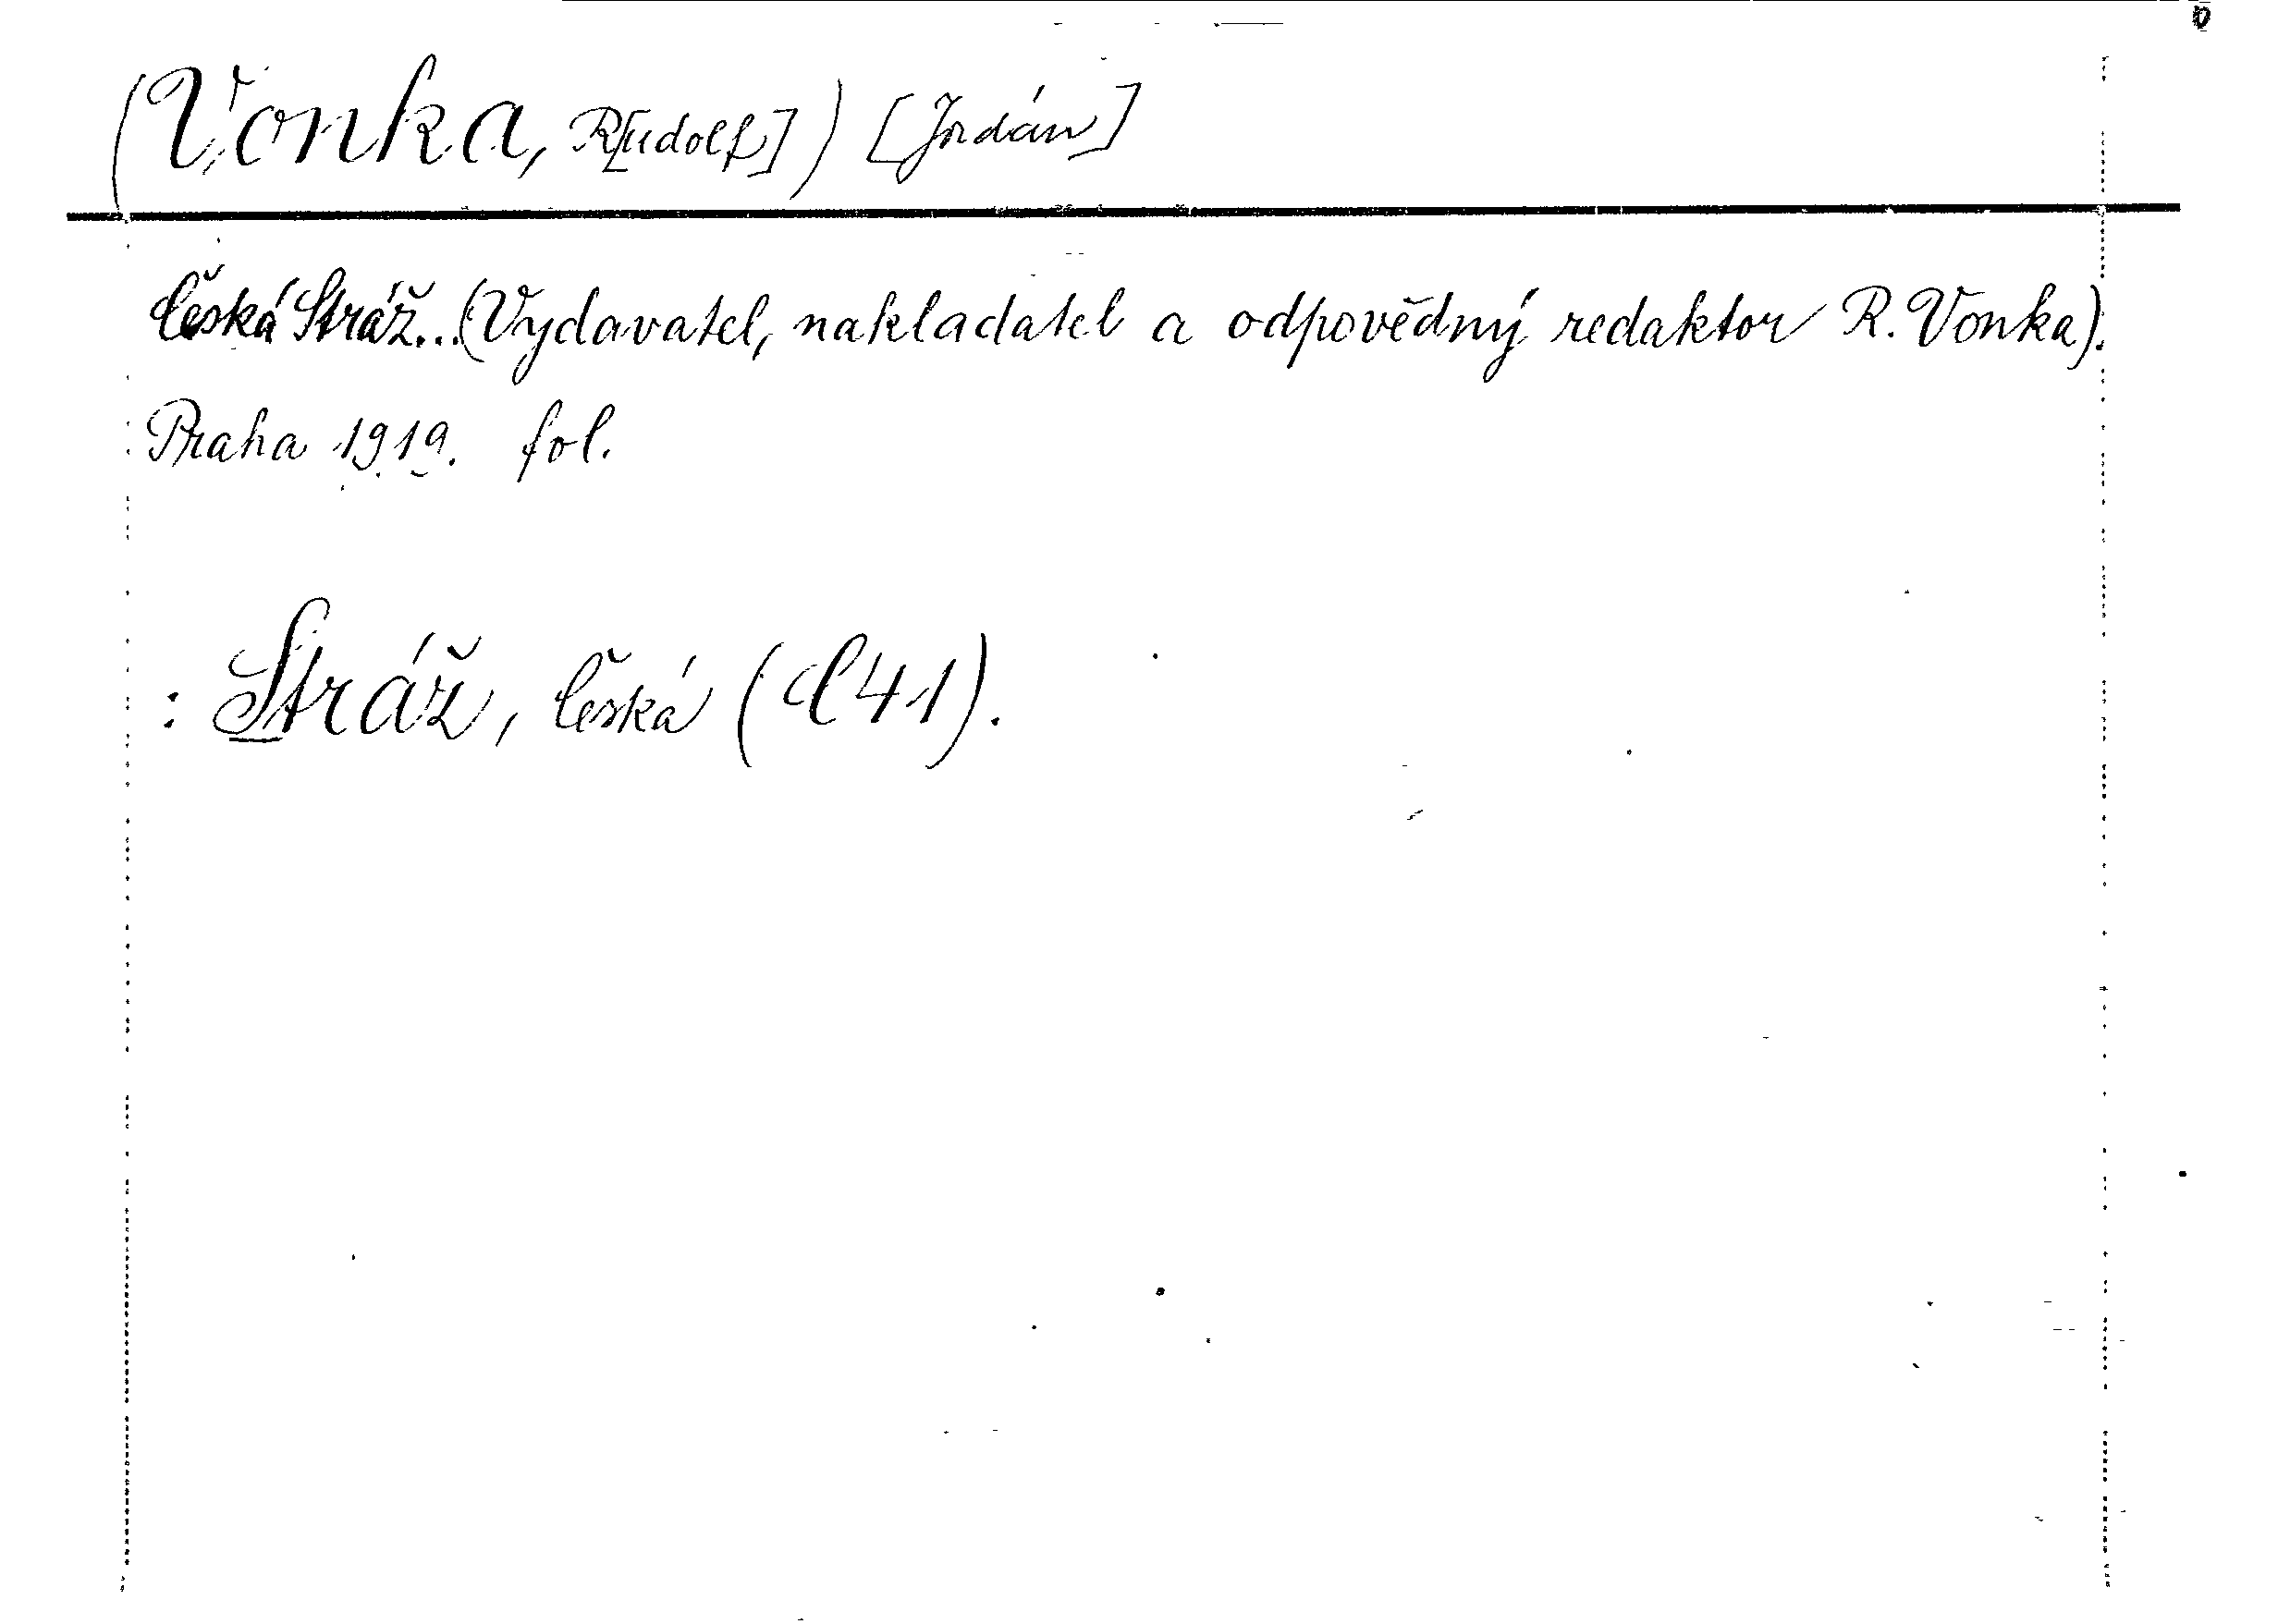 (Vonka, R[udolf]) [Jordán]
Česká Stráž...(Vydavatel, nakladatel a odpovědný redaktor R. Vonka).
Praha 1919. fol.
: Stráž, Česká (C 41).